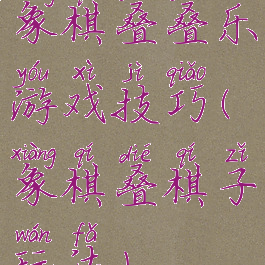 象棋叠叠乐
yóu xì jì qiǎo
游戏技巧(
xiàng qí dié qí zǐ
象棋叠棋子
wán fǎ
玩法)